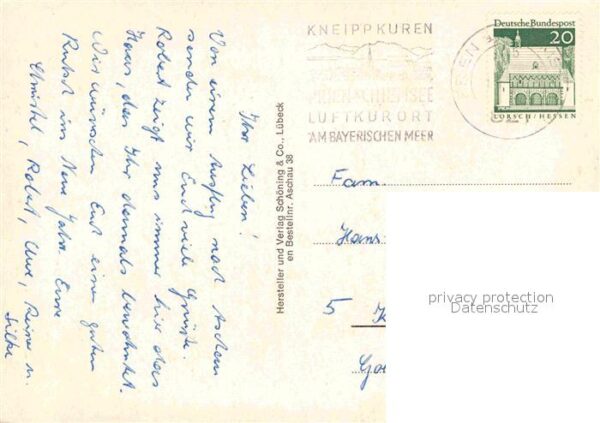 Ihr Lieben!
Von einem Ausflug nach Aschau
senden wir Euch viele Grüße.
Robert zeigt uns immer hier das
Haus, das Ihr damals bewohntet.
Wir wünschen Euch einen guten
Rutsch ins Neue Jahr. Eure
Christel, Robert, Uwe, Rainer u.
Silke
Hersteller und Verlag Schöning & Co., Lübeck
en Bestellnr. Aschau 38
KNEIPPKUREN
PRIEN CHIEMSEE
LUFTKURORT
AM BAYERISCHEN MEER
PRIEN
Deutsche Bundespost
20
LORSCH/HESSEN
Fam.
Hans
5
privacy protection
Datenschutz